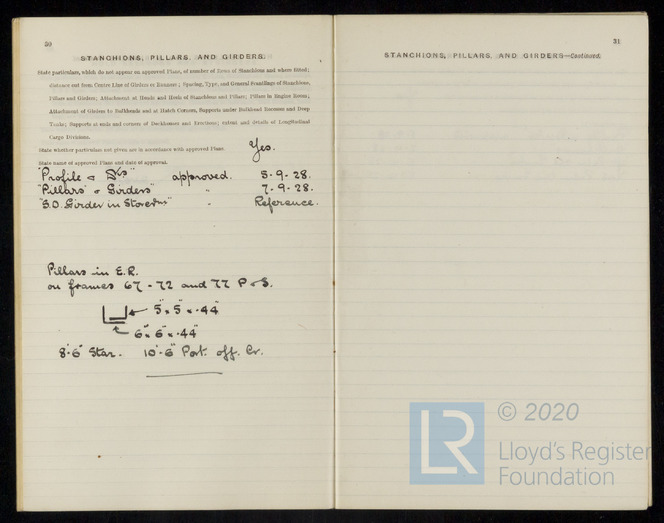 30
STANCHIONS, PILLARS, AND GIRDERS.
State particulars, which do not appear on approved Plans, of number of Rows of Stanchions and where fitted;
distance out from Centre Line of Girders or Runners; Spacing, Type, and General Scantlings of Stanchions,
Pillars and Girders; Attachment at Heads and Heels of Stanchions and Pillars; Pillars in Engine Room;
Attachment of Girders to Bulkheads and at Hatch Corners, Supports under Bulkhead Recesses and Deep
Tanks; Supports at ends and corners of Deckhouses and Erections; extent and details of Longitudinal
Cargo Divisions.
State whether particulars not given are in accordance with approved Plans. Yes.
State name of approved Plans and date of approval.
"Profile & Dks" approved. 5-9-28.
"Pillars & Girders" " 7-9-28.
Girder in " Reference.
Pillars in E.R.
on frames 67-72 and 77 P & S.
5" x 5" x .44"
6" x 6" x .44"
8'-6" Star. 10'-6" Port. off. Cr.
31
STANCHIONS, PILLARS, AND GIRDERS—Continued.
LR
© 2020
Lloyd's Register
Foundation